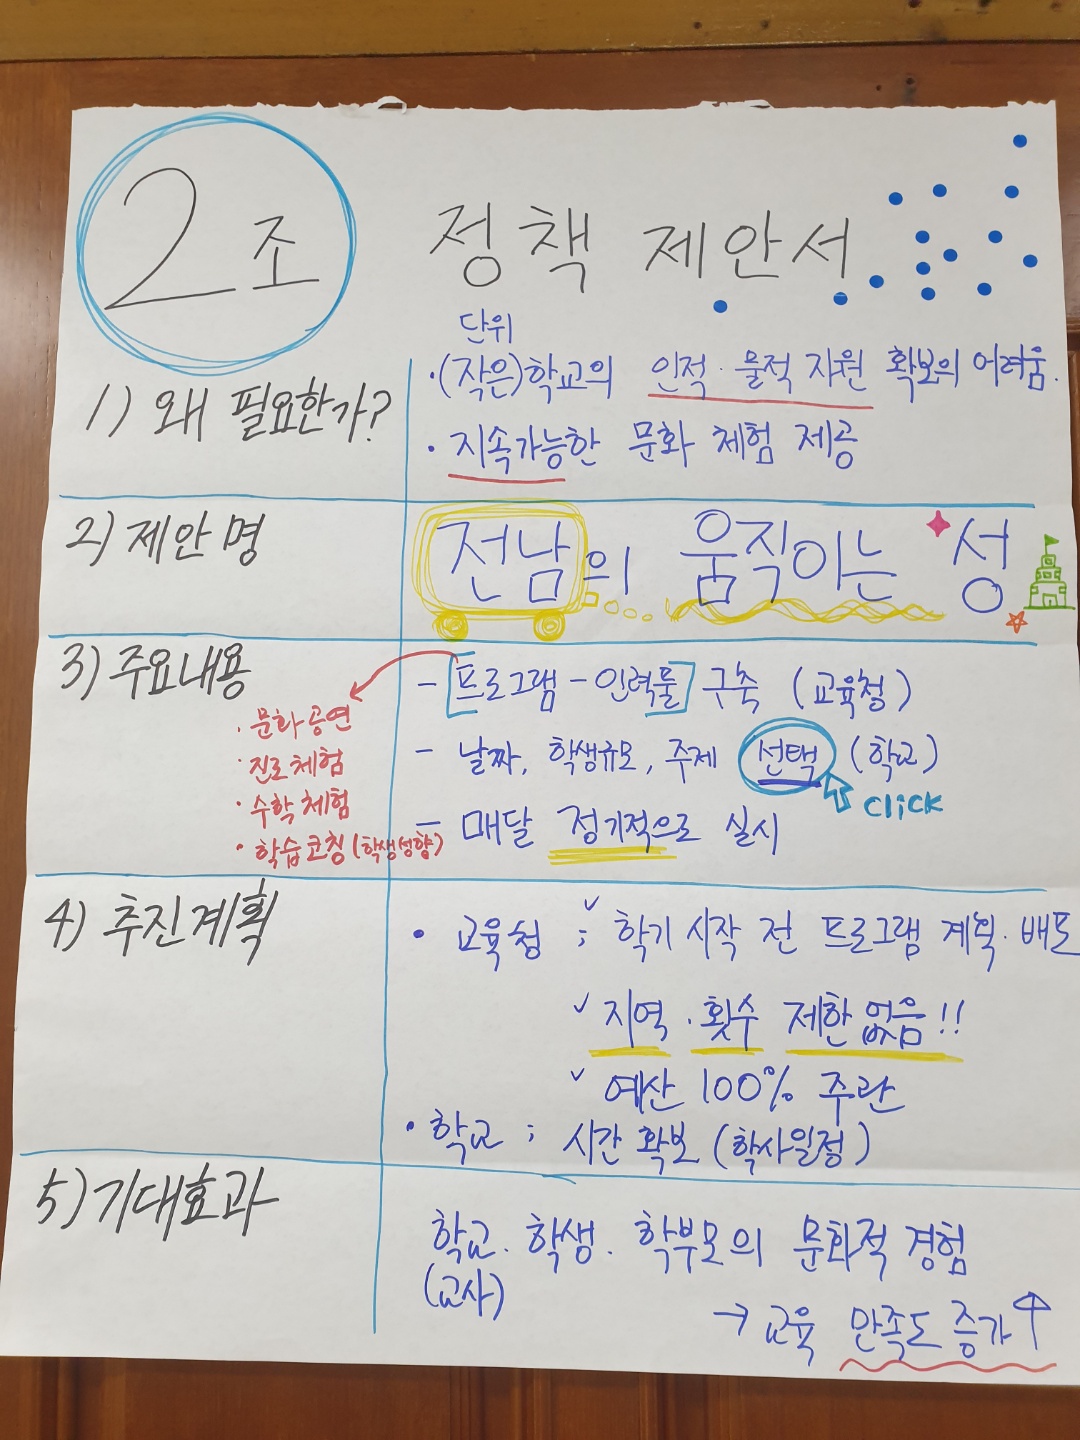 2조
정책 제안서
1) 왜 필요한가?
단위
·(작은)학교의 인적·물적 자원 확보의 어려움.
· 지속가능한 문화 체험 제공
2) 제안명
전남의 움직이는 성
3) 주요내용
- 프로그램-인력풀 구축 (교육청)
· 문화공연
· 진로체험
· 수학체험
· 학습코칭(학생성향)
- 날짜, 학생규모, 주제 선택 (학교)
click
- 매달 정기적으로 실시
4) 추진계획
· 교육청 ; ✓ 학기 시작 전 프로그램 계획·배포
✓ 지역·횟수 제한없음!!
✓ 예산 100% 주관
· 학교 ; 시간 확보 (학사일정)
5) 기대효과
학교·학생·학부모의 문화적 경험
(교사)
→ 교육 만족도 증가↑